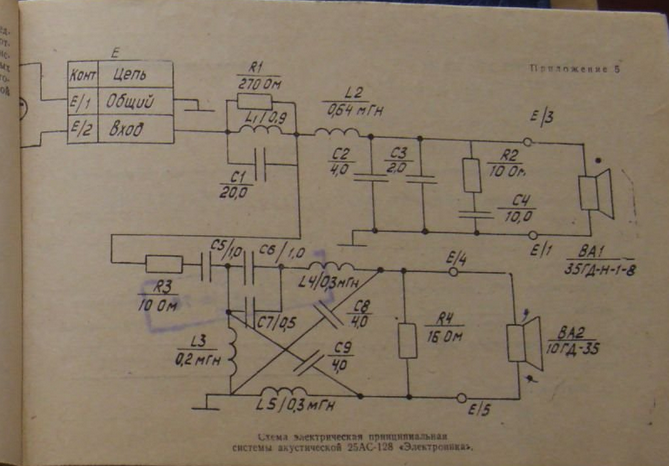 Приложение 5
E
Конт Цепь
E/1 Общий
E/2 Вход
R1
270 Ом
L1/0,9
C1
20,0
L2
0,64 мГн
C2
4,0
C3
2,0
R2
10 Ом
C4
10,0
E/3
E/1
BA1
35ГД-Н-1-8
R3
10 Ом
C5/1,0
C6/1,0
C7/0,5
L4/0,3мГн
C8
4,0
E/4
L3
0,2 мГн
C9
4,0
R4
16 Ом
BA2
10ГД-35
L5/0,3мГн
E/5
Схема электрическая принципиальная
системы акустической 25АС-128 «Электроника».